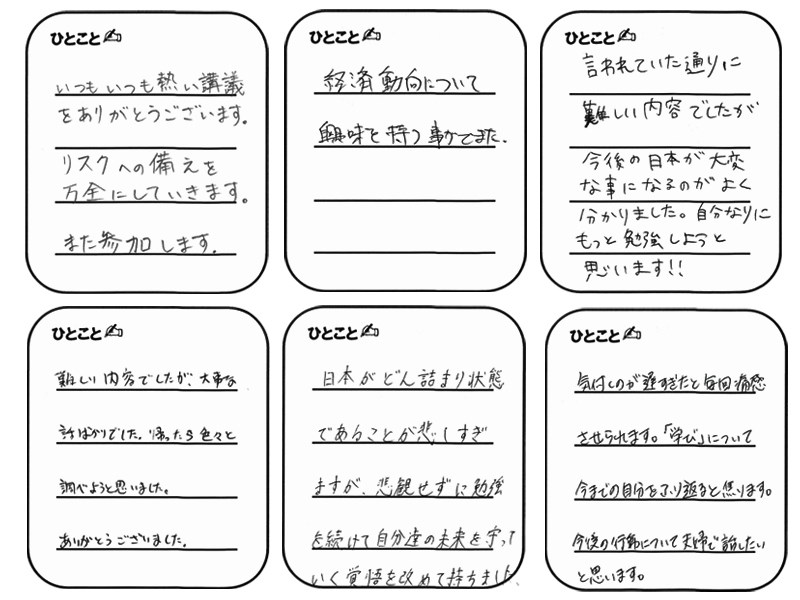 ひとこと
いつもいつも熱い講議
をありがとうございます。
リスクへの備えを
万全にしていきます。
また参加します。
ひとこと
経済動向について
興味を持つ事ができた。
ひとこと
言われていた通りに
難しい内容でしたが
今後の日本が大変
な事になるのがよく
分かりました。自分なりに
もっと勉強しようと
思います!!
ひとこと
難しい内容でしたが、大事な
話ばかりでした。帰ったら色々と
調べようと思いました。
ありがとうございました。
ひとこと
日本がどん詰まり状態
であることが悲しすぎ
ますが、悲観せずに勉強
を続けて自分達の未来を守って
いく覚悟を改めて持ちました。
ひとこと
気付くのが遅すぎたと毎回痛感
させられます。「学び」について
今までの自分をふり返ると焦ります。
今後の行動について夫婦で話したい
と思います。